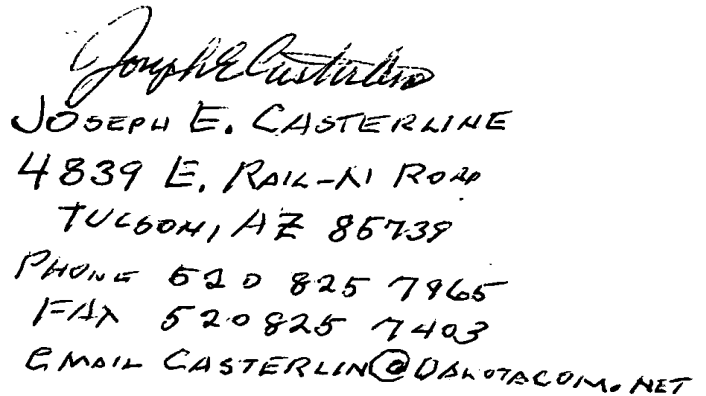 Joseph E Casterline
JOSEPH E. CASTERLINE
4839 E. RAIL-N ROAD
TUCSON, AZ 85739
PHONE 520 825 7965
FAX 520 825 7403
EMAIL CASTERLIN@DAKOTACOM.NET